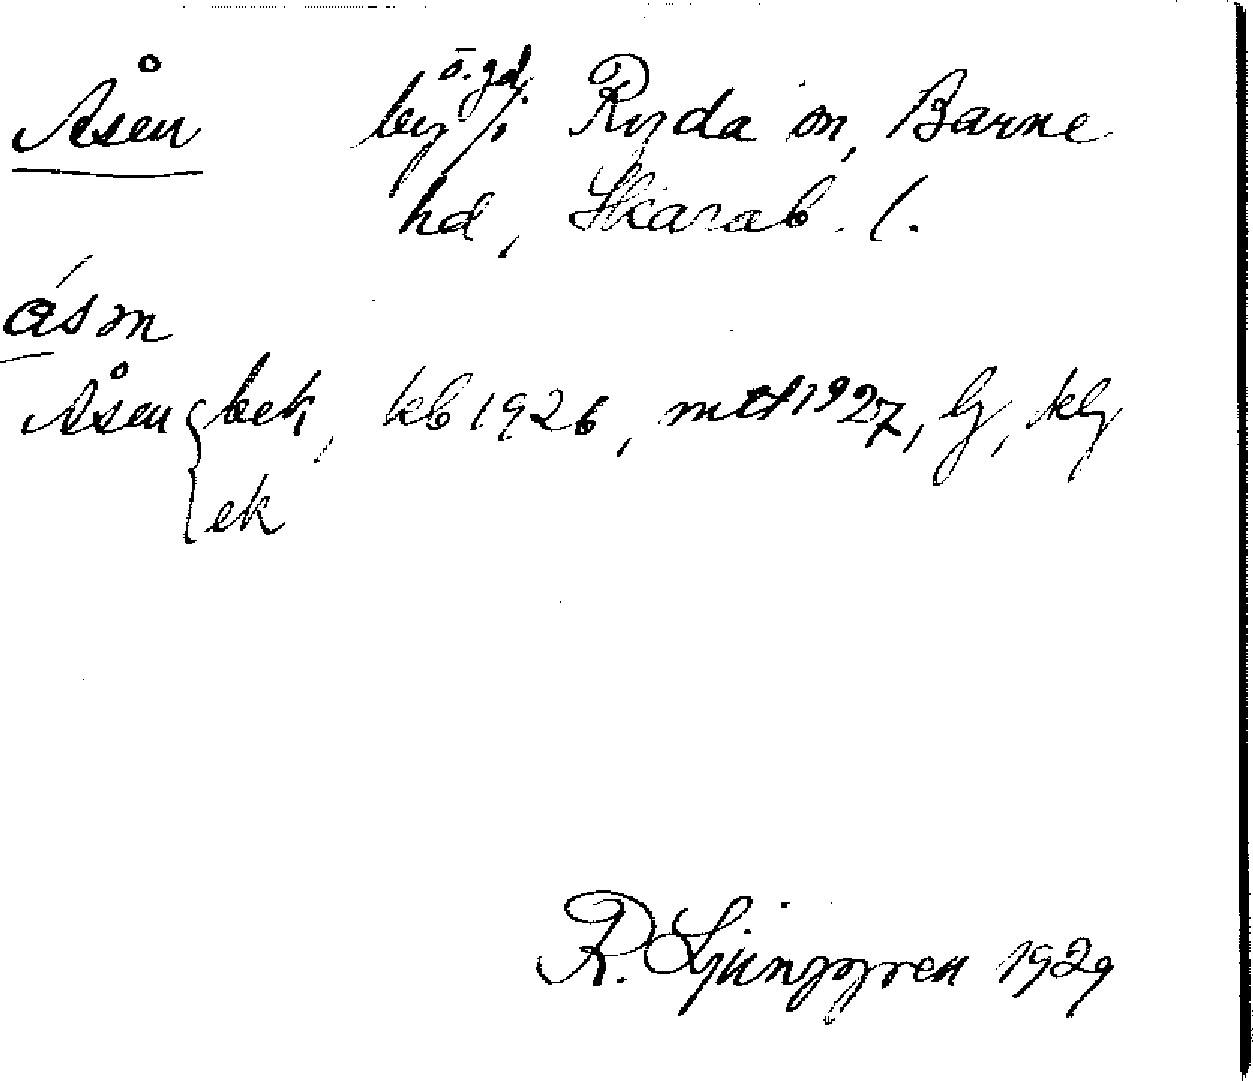 Åsen by o. gd. i Ryda sn, Barne
hd, Skarab. l.
ásṃ
Åsen { bek, kb 1926, mtl 1927, lj, klj
ek
R. Ljunggren 1929